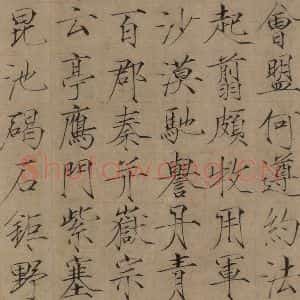 會盟何遵約法
起翦頗牧用軍
沙漠馳譽丹青
百郡秦并嶽宗
云亭鴈門紫塞
昆池碣石鉅野